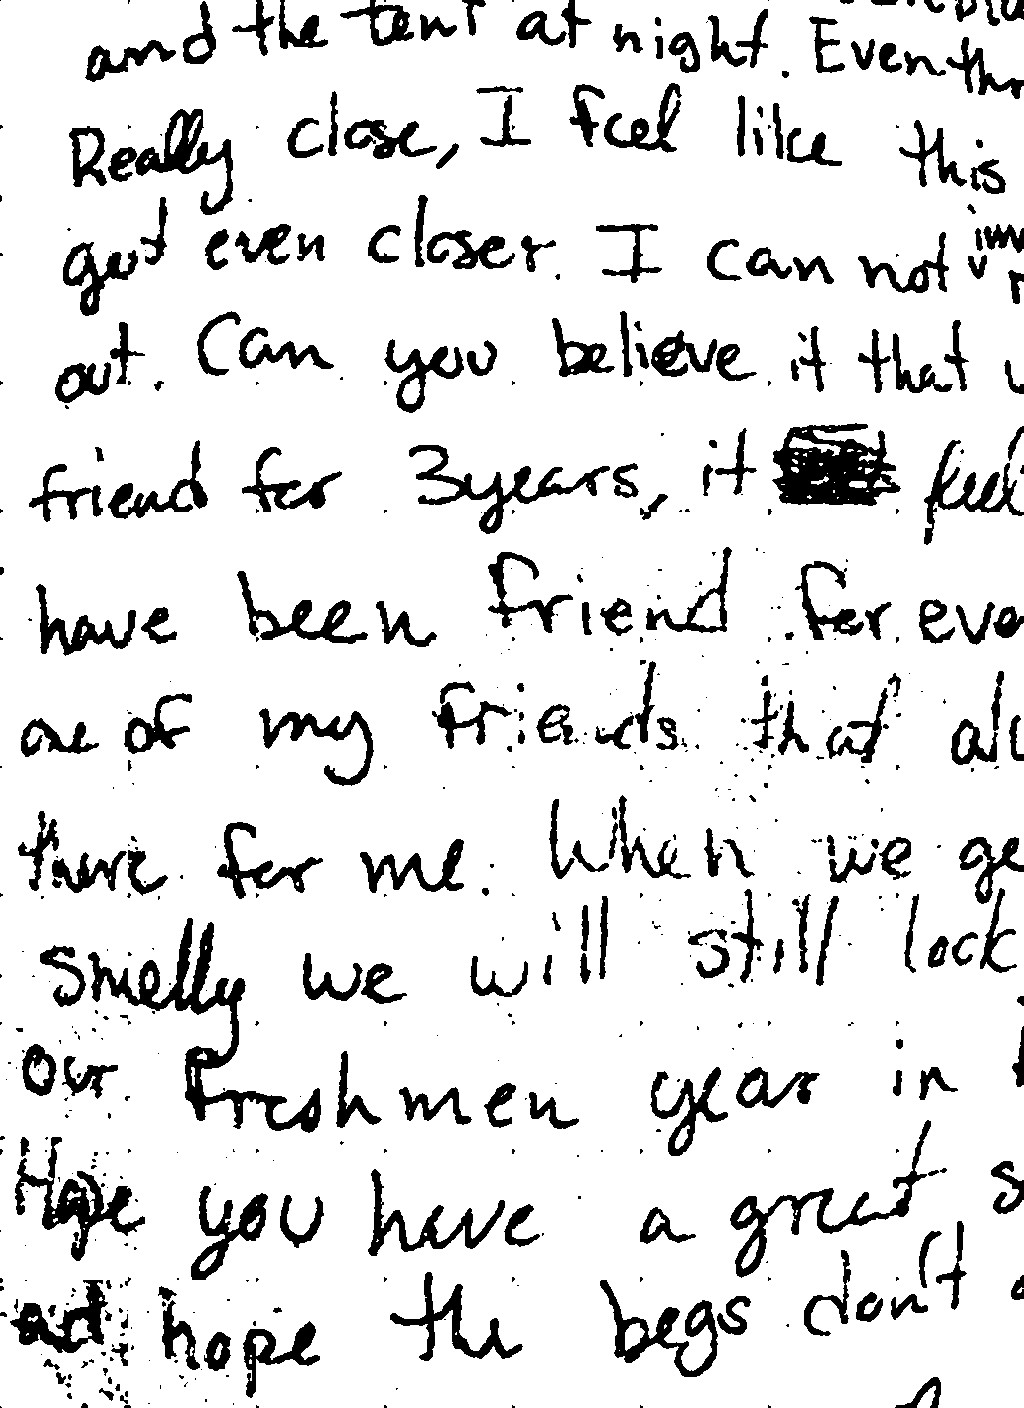 and the tent at night. Even
Really close, I feel like this
got even closer. I can not
out. Can you believe it that
friend for 3years, it feel
have been friend for eve
one of my friends that
there for me. When we ge
Smelly we will still lock
our freshmen year in
Hope you have a great s
and hope the begs don't